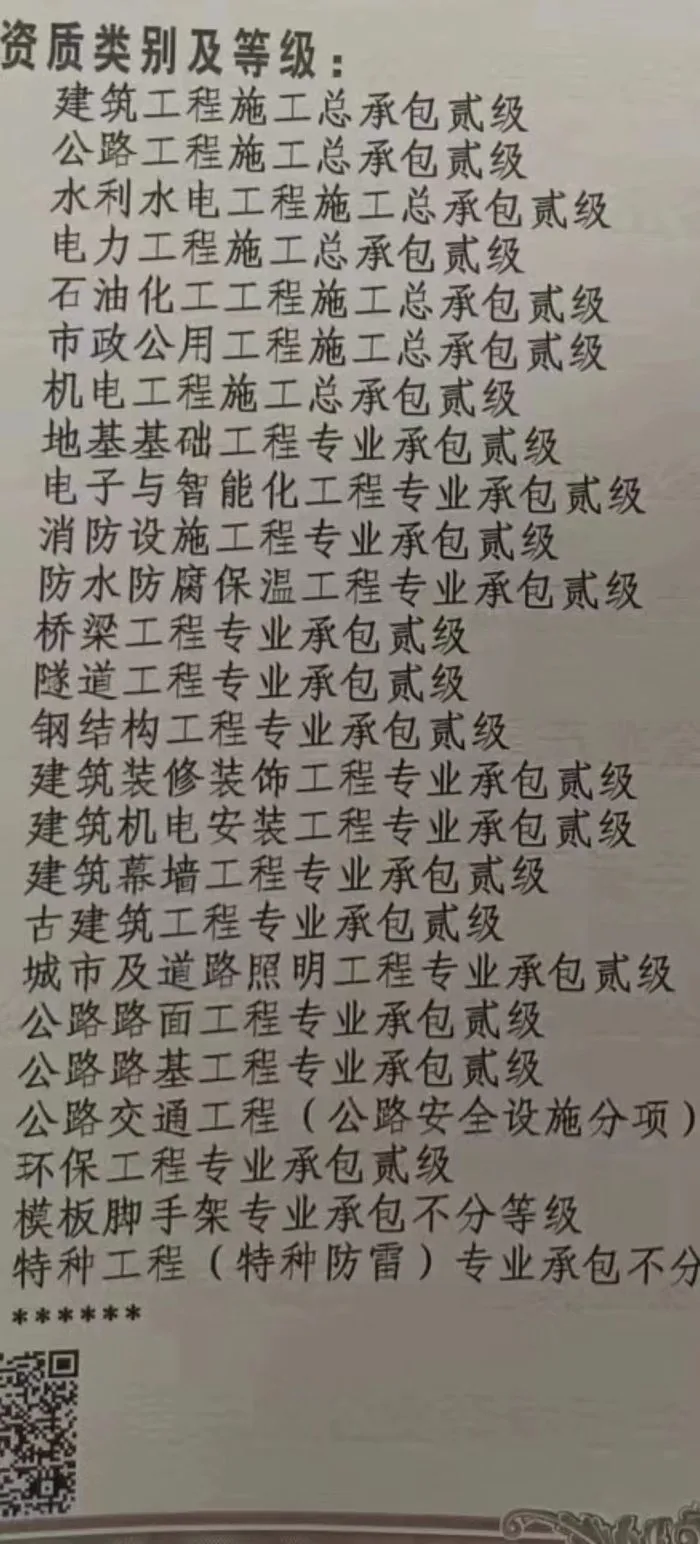 资质类别及等级：
建筑工程施工总承包贰级
公路工程施工总承包贰级
水利水电工程施工总承包贰级
电力工程施工总承包贰级
石油化工工程施工总承包贰级
市政公用工程施工总承包贰级
机电工程施工总承包贰级
地基基础工程专业承包贰级
电子与智能化工程专业承包贰级
消防设施工程专业承包贰级
防水防腐保温工程专业承包贰级
桥梁工程专业承包贰级
隧道工程专业承包贰级
钢结构工程专业承包贰级
建筑装修装饰工程专业承包贰级
建筑机电安装工程专业承包贰级
建筑幕墙工程专业承包贰级
古建筑工程专业承包贰级
城市及道路照明工程专业承包贰级
公路路面工程专业承包贰级
公路路基工程专业承包贰级
公路交通工程（公路安全设施分项）
环保工程专业承包贰级
模板脚手架专业承包不分等级
特种工程（特种防雷）专业承包不分
******